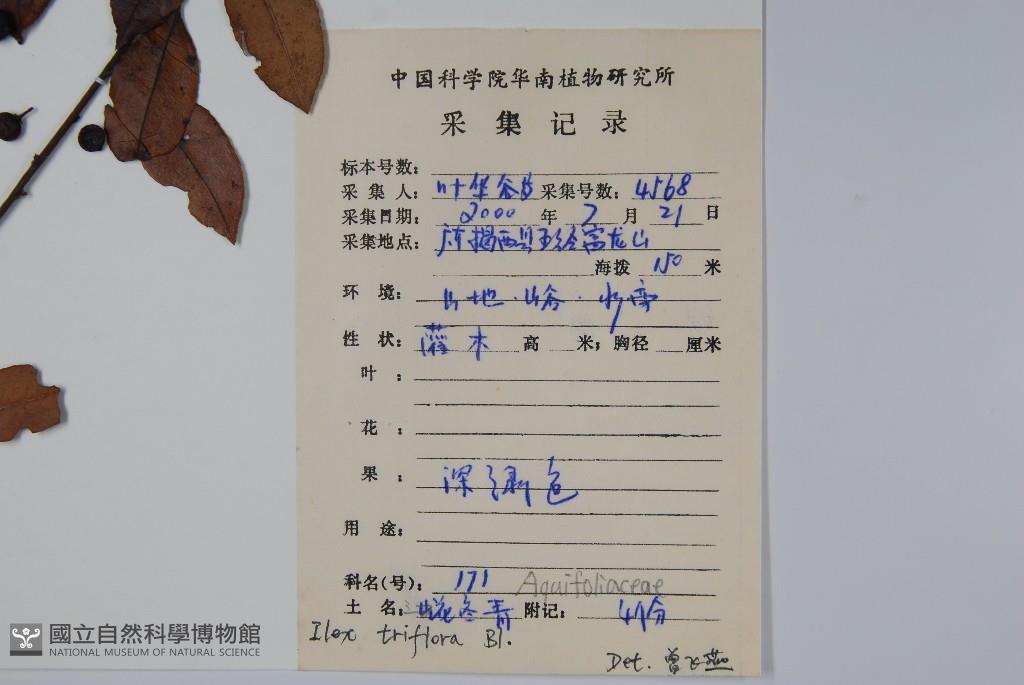 中国科学院华南植物研究所
采集记录
标本号数:
采集人: 叶华谷 采集号数: 4568
采集日期: 2000 年 7 月 21 日
采集地点: 广东揭西县五经富龙山
海拨 150 米
环境: 山地·山谷·水旁
性状: 灌木 高 米; 胸径 厘米
叶:
花:
果: 深绿色
用途:
科名(号): 171 Aquifoliaceae
土名: 三花冬青 附记: 4份
Ilex triflora Bl.
Det. 曾飞燕
國立自然科學博物館
NATIONAL MUSEUM OF NATURAL SCIENCE